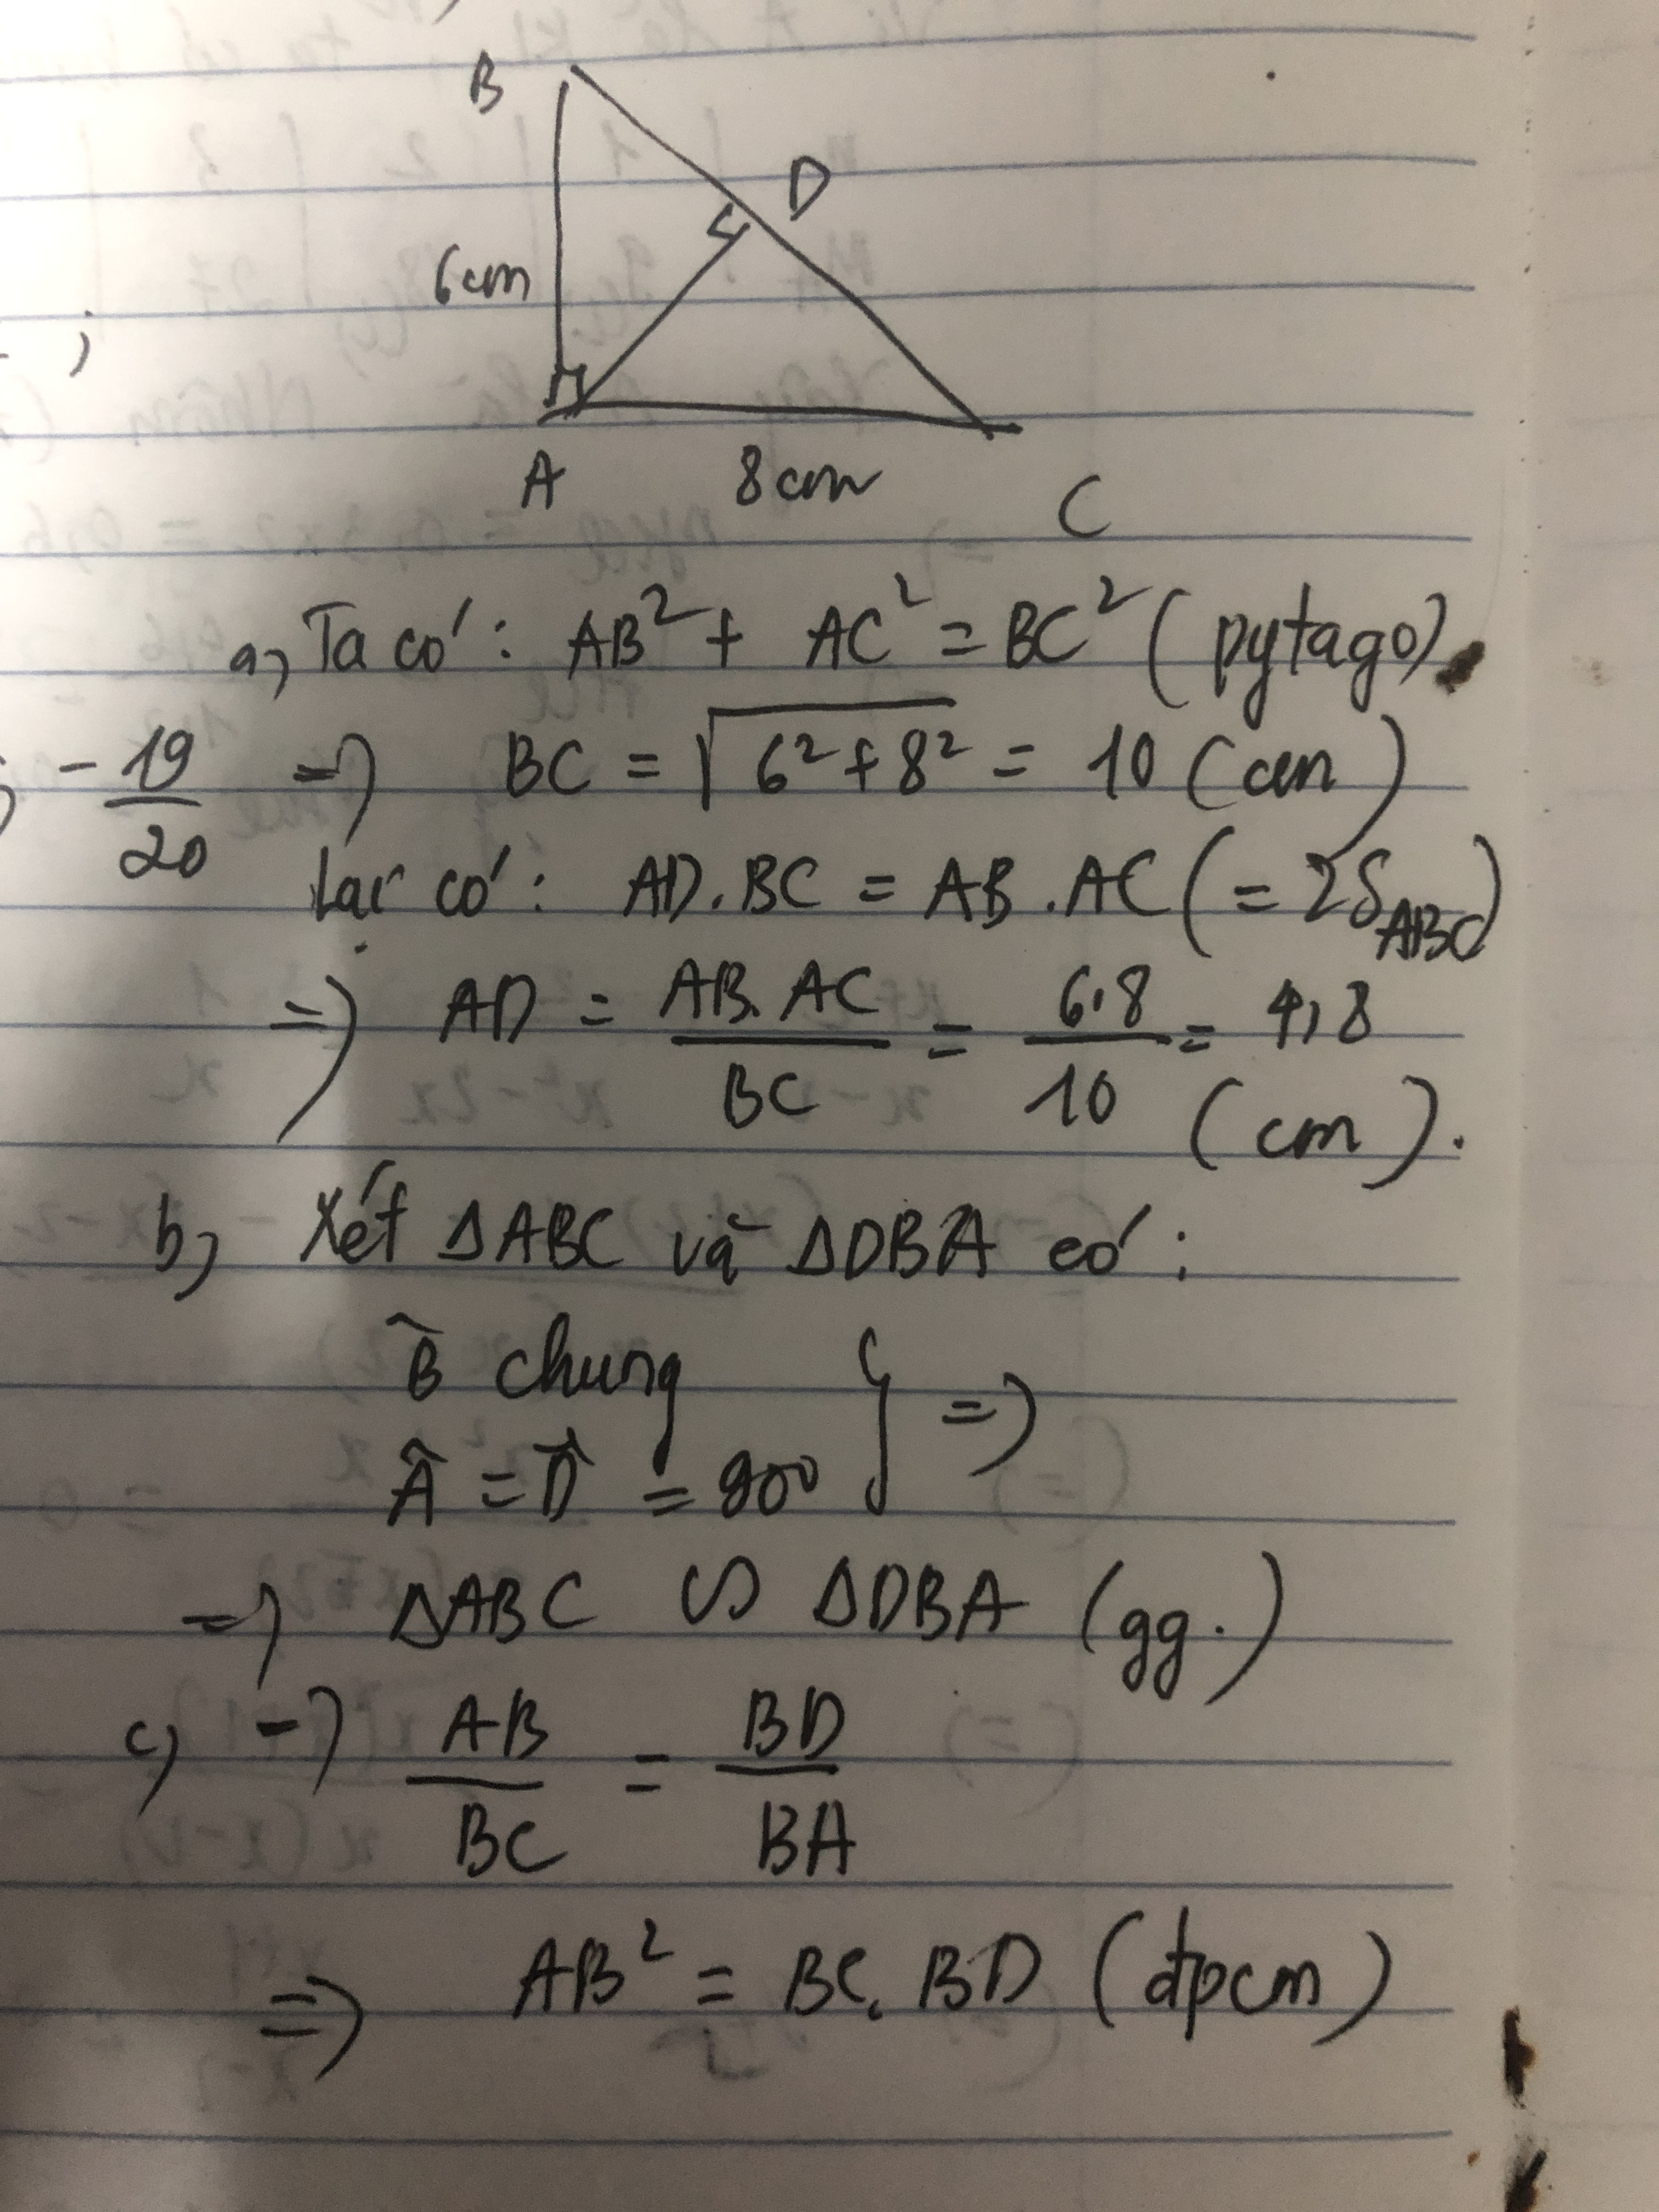 B
D
6cm
A
8cm
C
a, Ta có: AB² + AC² = BC² (pytago)
- 19/20
=> BC = √(6² + 8²) = 10 (cm)
Lại có: AD.BC = AB.AC (= 2S_ABC)
=> AD = AB.AC/BC = 6.8/10 = 4,8
(cm).
b, Xét ΔABC và ΔDBA có:
B̂ chung } =>
Â = D̂ = 90⁰
=> ΔABC ∽ ΔDBA (gg.)
c, => AB/BC = BD/BA
=> AB² = BC.BD (đpcm)